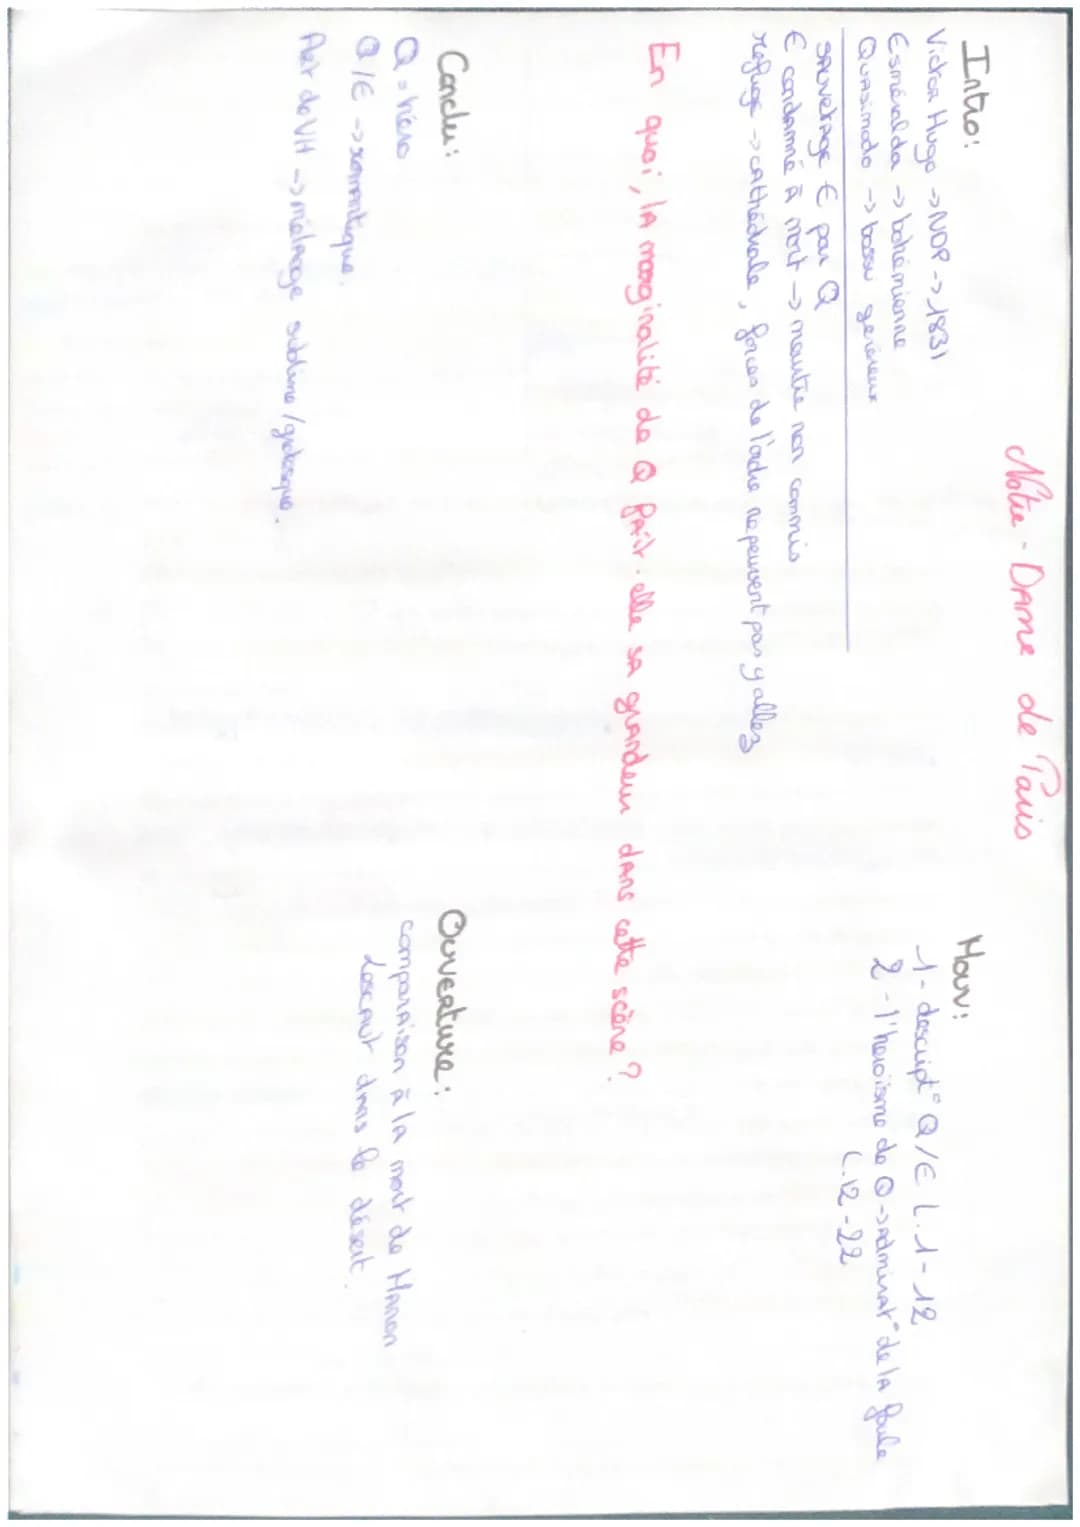 Notre-Dame de Paris
Intro:
Victor Hugo -> NDP -> 1831
Esméralda -> bohémienne
Quasimodo -> bossu généreux
sauvetage E par Q
E condamné à mort -> meurtre non commis
refuge -> cathédrale, forces de l'ordre ne peuvent pas y aller
Mouv:
1- descript° Q/E L.1-12
2- l'héroïsme de Q -> admirat° de la foule
L.12-22
En quoi, la marginalité de Q fait-elle sa grandeur dans cette scène ?
Conclu:
Q = héro
Q/E -> romantique.
Art de VH -> mélange sublime/grotesque.
Ouverture:
comparaison à la mort de Manon
Lescaut dans le désert.